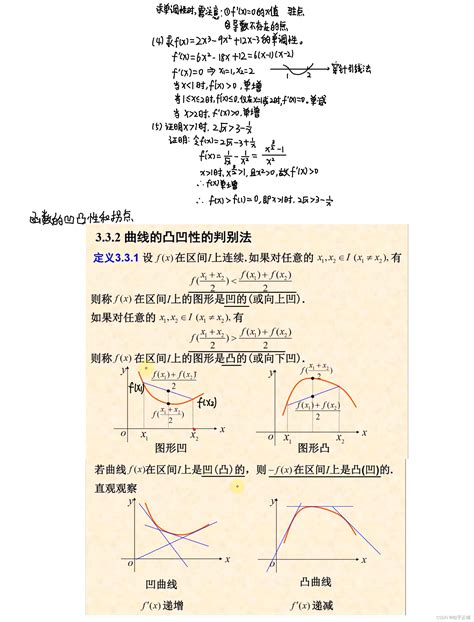 求单调性时,需注意:①f'(x)=0的x值 驻点
②导数不存在的点
(4)求f(x)=2x³-9x²+12x-3的单调性。
f'(x)=6x²-18x+12=6(x-1)(x-2)
f'(x)=0 ⇒ x₁=1, x₂=2
1 2 穿针引线法
当x<1时,f'(x)>0,单增
当1≤x≤2时,f'(x)≤0,仅在x=1或2时,f'(x)=0。单减
当x>2时,f'(x)>0,单增
(5)证明x>1时,2√x>3-1/x
证明:令f(x)=2√x-3+1/x
f'(x)=1/√x-1/x²=(x^(3/2)-1)/x²
x>1时,x^(3/2)>1,且x²>0,故f'(x)>0
∴f(x)单增
∴f(x)>f(1)=0,即x>1时,2√x>3-1/x
函数的凹凸性和拐点
3.3.2 曲线的凸凹性的判别法
定义3.3.1 设f(x)在区间I上连续,如果对任意的 x₁,x₂∈I (x₁≠x₂),有
f((x₁+x₂)/2)<(f(x₁)+f(x₂))/2
则称f(x)在区间I上的图形是凹的(或向上凹).
如果对任意的 x₁,x₂∈I (x₁≠x₂),有
f((x₁+x₂)/2)>(f(x₁)+f(x₂))/2
则称f(x)在区间I上的图形是凸的(或向下凹).
y (f(x₁)+f(x₂))/2 f(x₁) f((x₁+x₂)/2) f(x₂) o x₁ x₂ x
y f((x₁+x₂)/2) (f(x₁)+f(x₂))/2 o x₁ x₂ x
图形凹 图形凸
若曲线f(x)在区间I上是凹(凸)的,则-f(x)在区间I上是凸(凹)的.
直观观察
y o x y o x
凹曲线 凸曲线
f'(x)递增 f'(x)递减